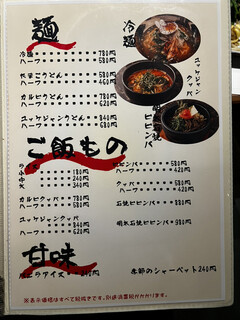 麺
冷麺 780円
ハーフ 580円
たまごうどん 580円
ハーフ 460円
カルビうどん 780円
ハーフ 620円
ユッケジャンうどん 840円
ハーフ 680円
冷麺
ユッケジャンクッパ
石焼ビビンバ
ご飯もの
ライス
小 180円
中 240円
大 340円
カルビクッパ 780円
ハーフ 620円
ユッケジャンクッパ 840円
ハーフ 680円
ビビンバ 580円
ハーフ 420円
クッパ 580円
ハーフ 420円
石焼ビビンバ 880円
明太石焼ビビンバ 980円
甘味
バニラアイス
季節のシャーベット240円
※表示価格はすべて税抜きです。別途消費税がかかります。